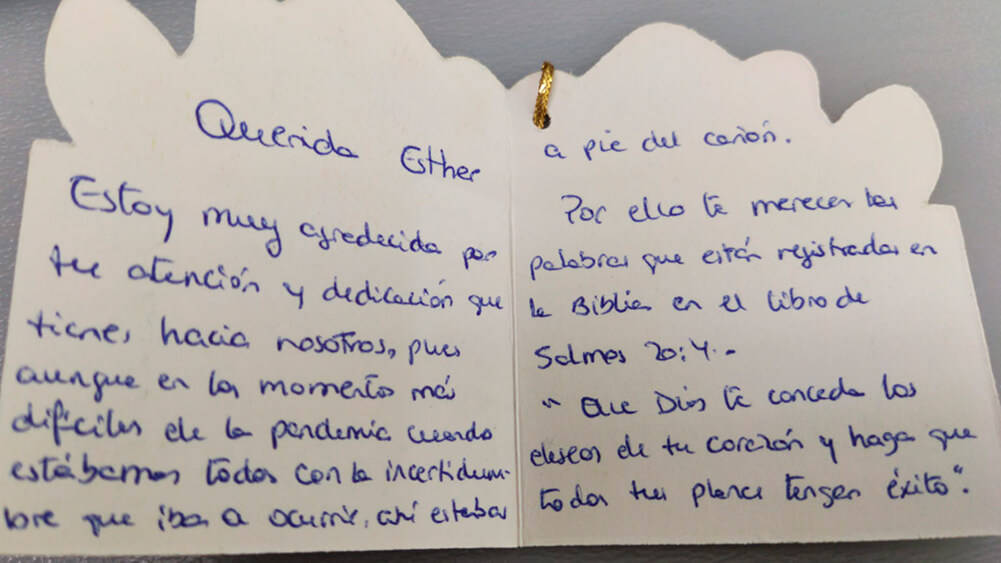 Querida Esther
Estoy muy agradecida por
tu atención y dedicación que
tienes hacia nosotros, pues
aunque en los momentos más
difíciles de la pandemia cuando
estábamos todos con la incertidum-
bre que iba a ocurrir, ahí estabas
a pie del cañón.
Por ello te merecer las
palabras que están registradas en
la Biblia en el libro de
Salmos 20:4.-
"Que Dios te conceda los
deseos de tu corazón y haga que
todos tus planes tengan éxito".